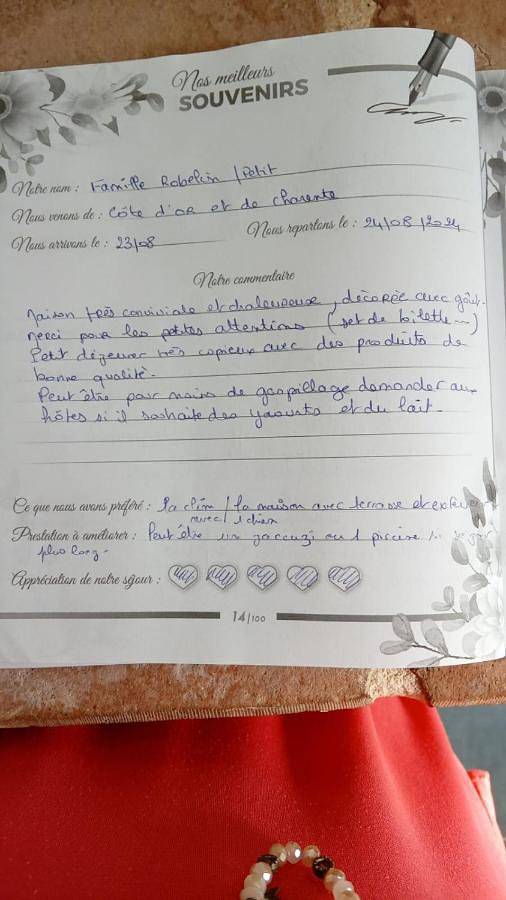 Nos meilleurs
SOUVENIRS
Notre nom : Famille Robelin / Petit
Nous venons de : Côte d'or et de charente
Nous arrivons le : 23/08 Nous repartons le : 24/08/2024
Notre commentaire
Maison très conviviale et chaleureuse, décorée avec goût.
Merci pour les petites attentions (set de toilette ...)
Petit déjeuner très copieux avec des produits de
bonne qualité.
Peut être pour moins de gaspillage demander aux
hôtes si il souhaite des yaourts et du lait.
Ce que nous avons préféré : la clim / la maison avec terrasse et extérieur
avec 1 chien
Prestation à améliorer : Peut être un jaccuzi ou 1 piscine
plus long.
Appréciation de notre séjour :
14/100